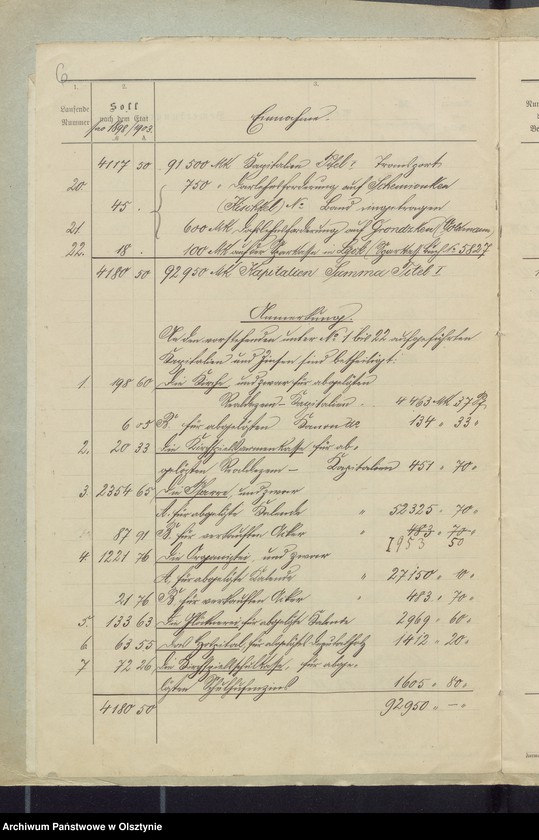 6
1. 2. 3.
Laufende Nummer
Soll nach dem Etat pro 1898/1903.
M. ₰
Einnahme.
4117 50 91 500 Mk Kapitalien Titel I Transport
20 750 " Darlehnsforderung auf Schemionken
45 . (Kischkel) No Band eingetragen
21 600 Mk Darlehnsforderung auf Grondzken
22. 18 . 100 Mk auf der Sparkasse in Lyck / Sparkass. Buch No 5827
4180 50 92950 Mk Kapitalien Summa Titel I
Anmerkung.
An den vorstehenden unter No 1 bis 22 aufgeführten
Kapitalien und Zinsen sind betheiligt:
1. 198 60 Die Kirche, und zwar für abgelösten
Realdezem-Kapitalien . 4 463 Mk 37 ₰
6 05 B. für abgelösten Canon 134 " 33 "
2. 20 33 die Kirchspielsarmenkasse für ab-
gelösten Realdezem - Kapitalien 451 " 70 "
3. 2354 65 Die Pfarre, und zwar
A. für abgelöste Kalende " 52325 " 70 "
87 91 B. für verkauften Acker " 483 " 70 "
1953 50
4. 1221 76 Die Organistei, und zwar
A. für abgelöste Kalende " 27150 " 10 "
21 76 B. für verkauften Acker " 483 " 70 "
5 133 63 Die Glöcknerei für abgelöste Kalende 2969 " 60 "
6 63 55 Das Hospital, für abgelöstes Deputatholz 1412 " 20 "
7 72 26 die Kirchspielsschulkasse, für abge-
lösten Schulhufenzins 1605 " 80 "
4180 50 92950 " - "
Archiwum Państwowe w Olsztynie